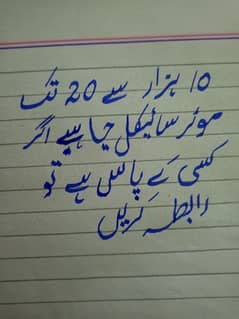 10 ہزار سے 20 تک
موٹر سائیکل چاہیے اگر
کسی کے پاس ہے تو
رابطہ کریں